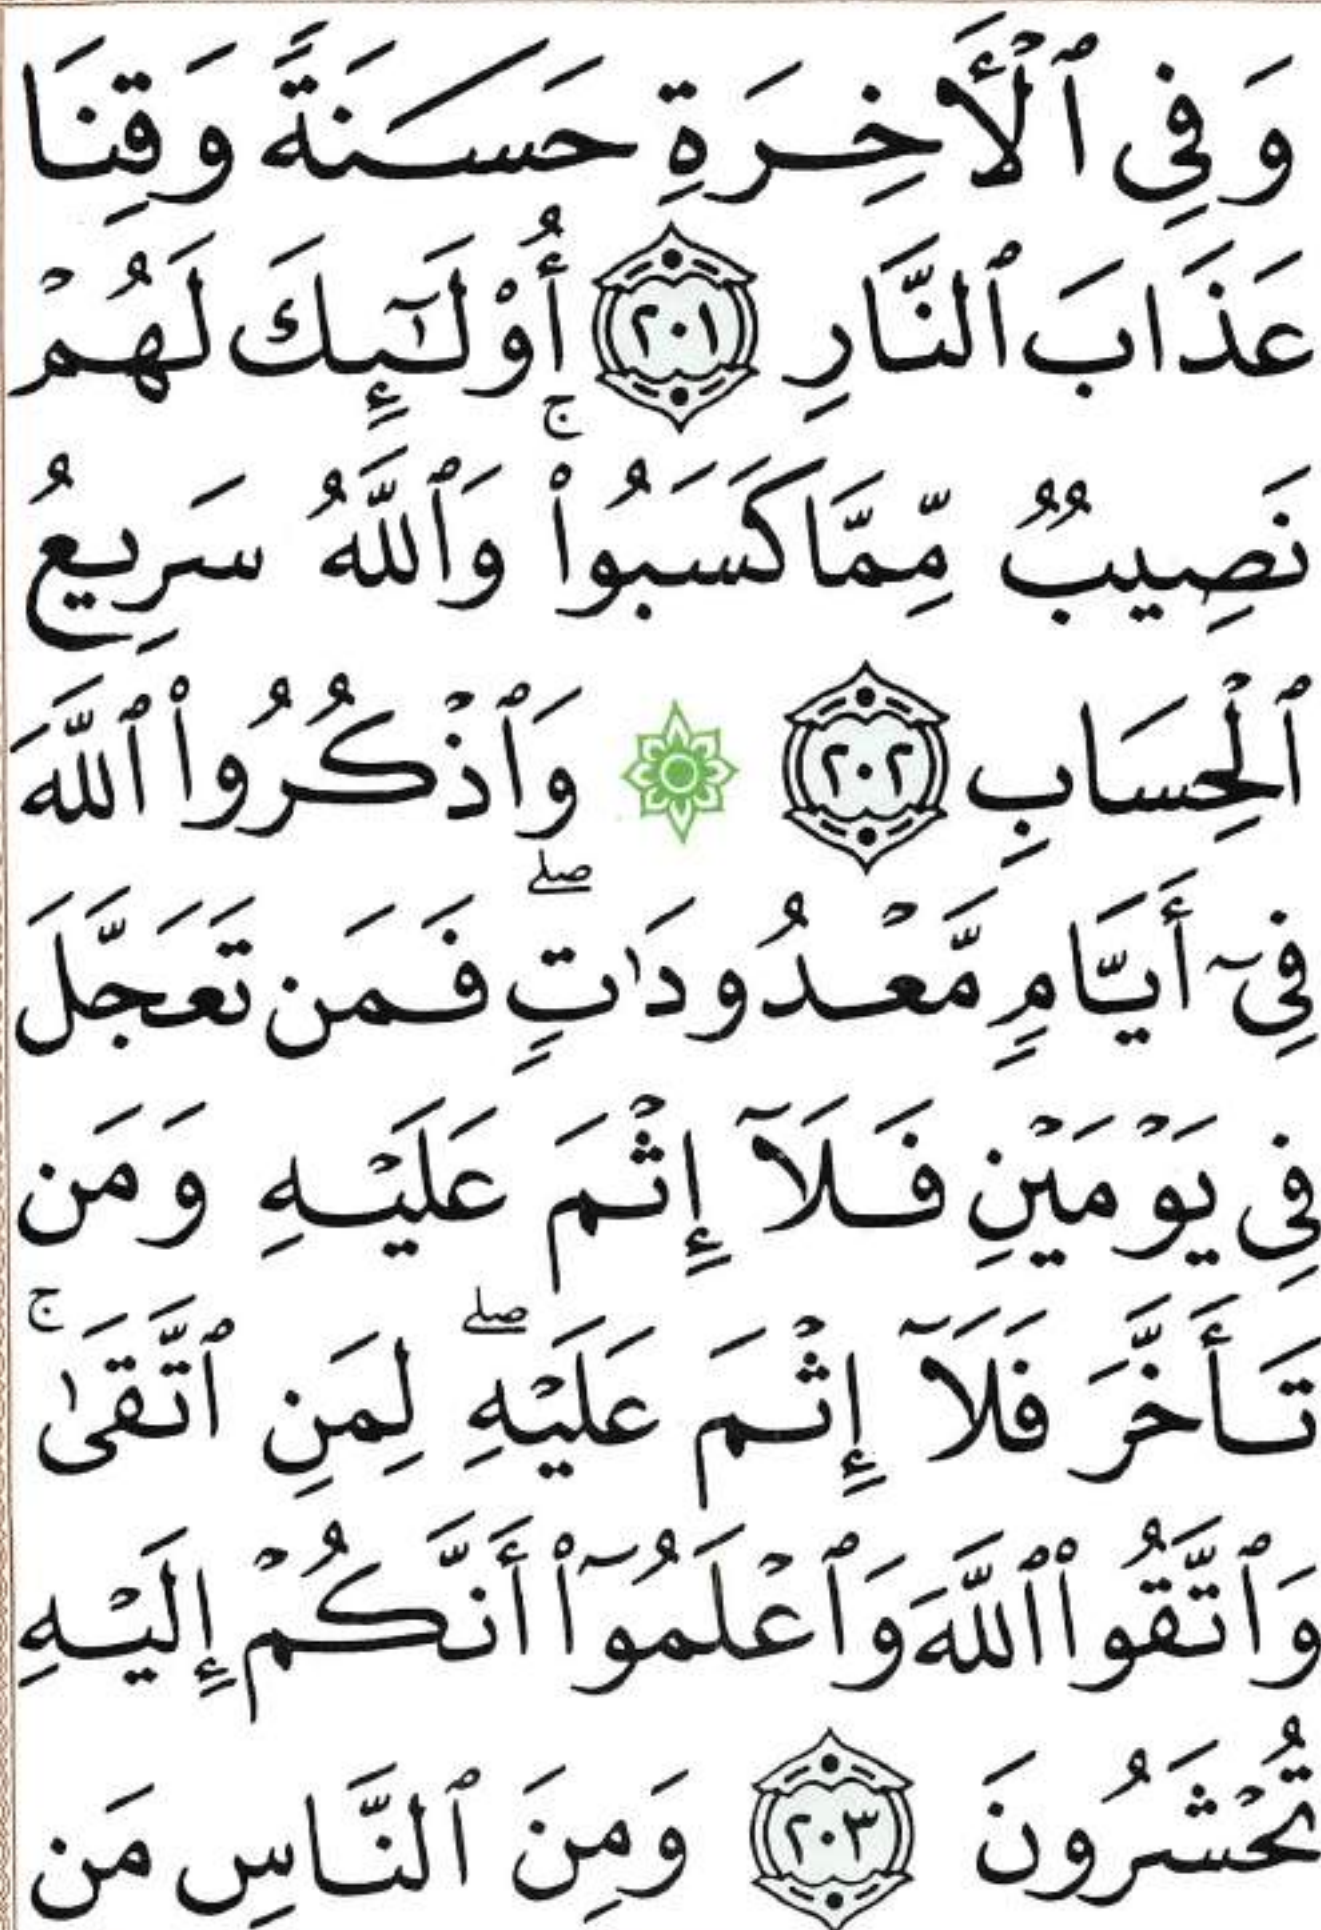 وَفِي ٱلْأَخِرَةِ حَسَنَةً وَقِنَا
عَذَابَ ٱلنَّارِ ٢٠١ أُوْلَٰٓئِكَ لَهُمْ
نَصِيبٌ مِّمَّا كَسَبُوا۟ ۚ وَٱللَّهُ سَرِيعُ
ٱلْحِسَابِ ٢٠٢ وَٱذْكُرُوا۟ ٱللَّهَ
فِىٓ أَيَّامٍ مَّعْدُودَٰتٍ ۖ فَمَن تَعَجَّلَ
فِى يَوْمَيْنِ فَلَآ إِثْمَ عَلَيْهِ وَمَن
تَأَخَّرَ فَلَآ إِثْمَ عَلَيْهِ ۖ لِمَنِ ٱتَّقَىٰ ۚ
وَٱتَّقُوا۟ ٱللَّهَ وَٱعْلَمُوٓا۟ أَنَّكُمْ إِلَيْهِ
تُحْشَرُونَ ٢٠٣ وَمِنَ ٱلنَّاسِ مَن